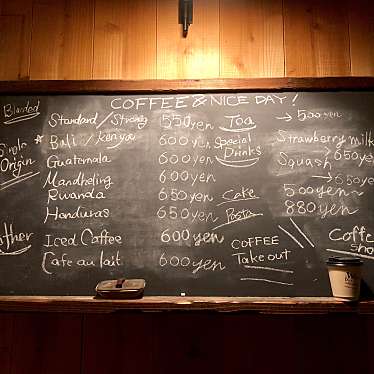 COFFEE & NICE DAY!
Blended
Standard / Strong 550yen
Single Origin
Bali / kenya 600yen
Guatemala 600yen
Mandheling 600yen
Rwanda 650yen
Honduras 650yen
Other
Iced Coffee 600yen
Cafe au lait 600yen
Tea → 500yen
Special Drinks
Strawberry milk
→ 650yen
Squash
→ 650yen
Cake 500yen~
Pasta 880yen
COFFEE
Take out
Coffee